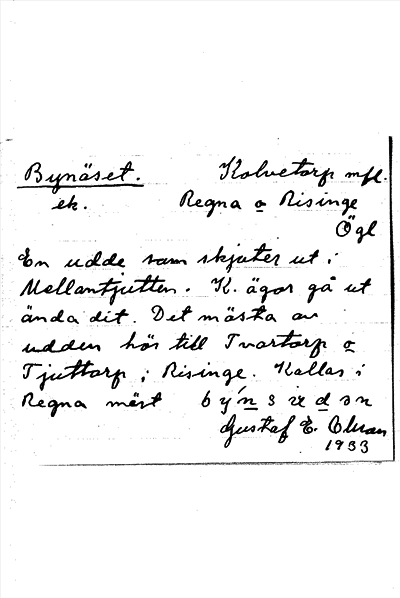 Bynäset. Kolvetorp mfl.
ek. Regna o Risinge
Ögl
En udde som skjuter ut i
Mellantjutten. K. ägor gå ut
ända dit. Det mästa av
udden hör till Tvartorp o
Tjuttorp i Risinge. Kallas i
Regna mäst
Gustaf E. Olsson
1933